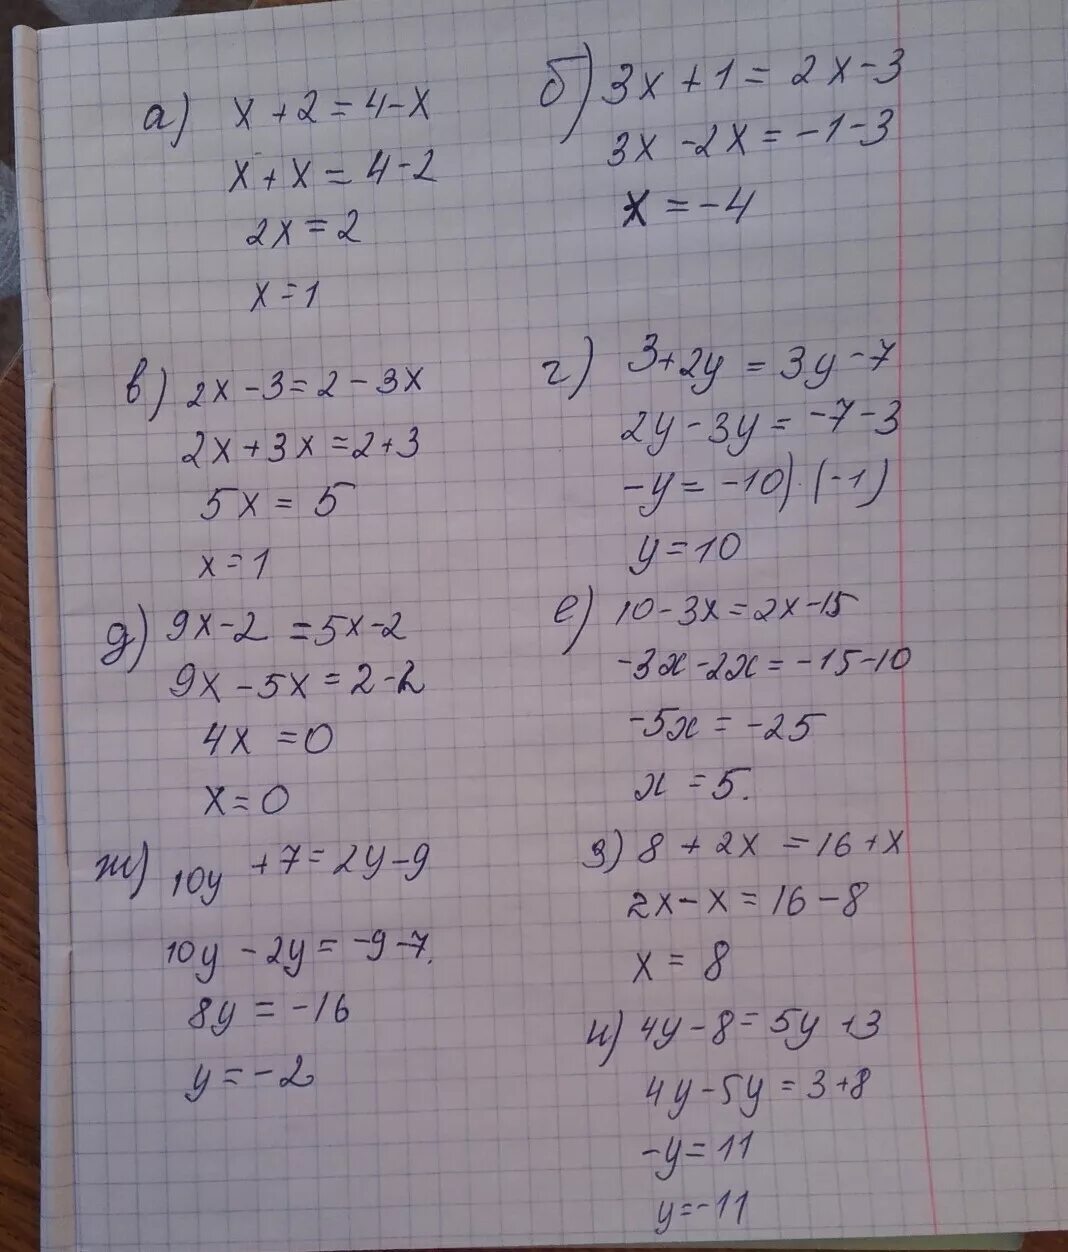 а) x + 2 = 4 - x
x + x = 4 - 2
2x = 2
x = 1
б) 3x + 1 = 2x - 3
3x - 2x = -1 - 3
x = -4
в) 2x - 3 = 2 - 3x
2x + 3x = 2 + 3
5x = 5
x = 1
г) 3 + 2y = 3y - 7
2y - 3y = -7 - 3
-y = -10) · (-1)
y = 10
д) 9x - 2 = 5x - 2
9x - 5x = 2 - 2
4x = 0
x = 0
е) 10 - 3x = 2x - 15
-3x - 2x = -15 - 10
-5x = -25
x = 5.
ж) 10y + 7 = 2y - 9
10y - 2y = -9 - 7.
8y = -16
y = -2
з) 8 + 2x = 16 + x
2x - x = 16 - 8
x = 8
и) 4y - 8 = 5y + 3
4y - 5y = 3 + 8
-y = 11
y = -11